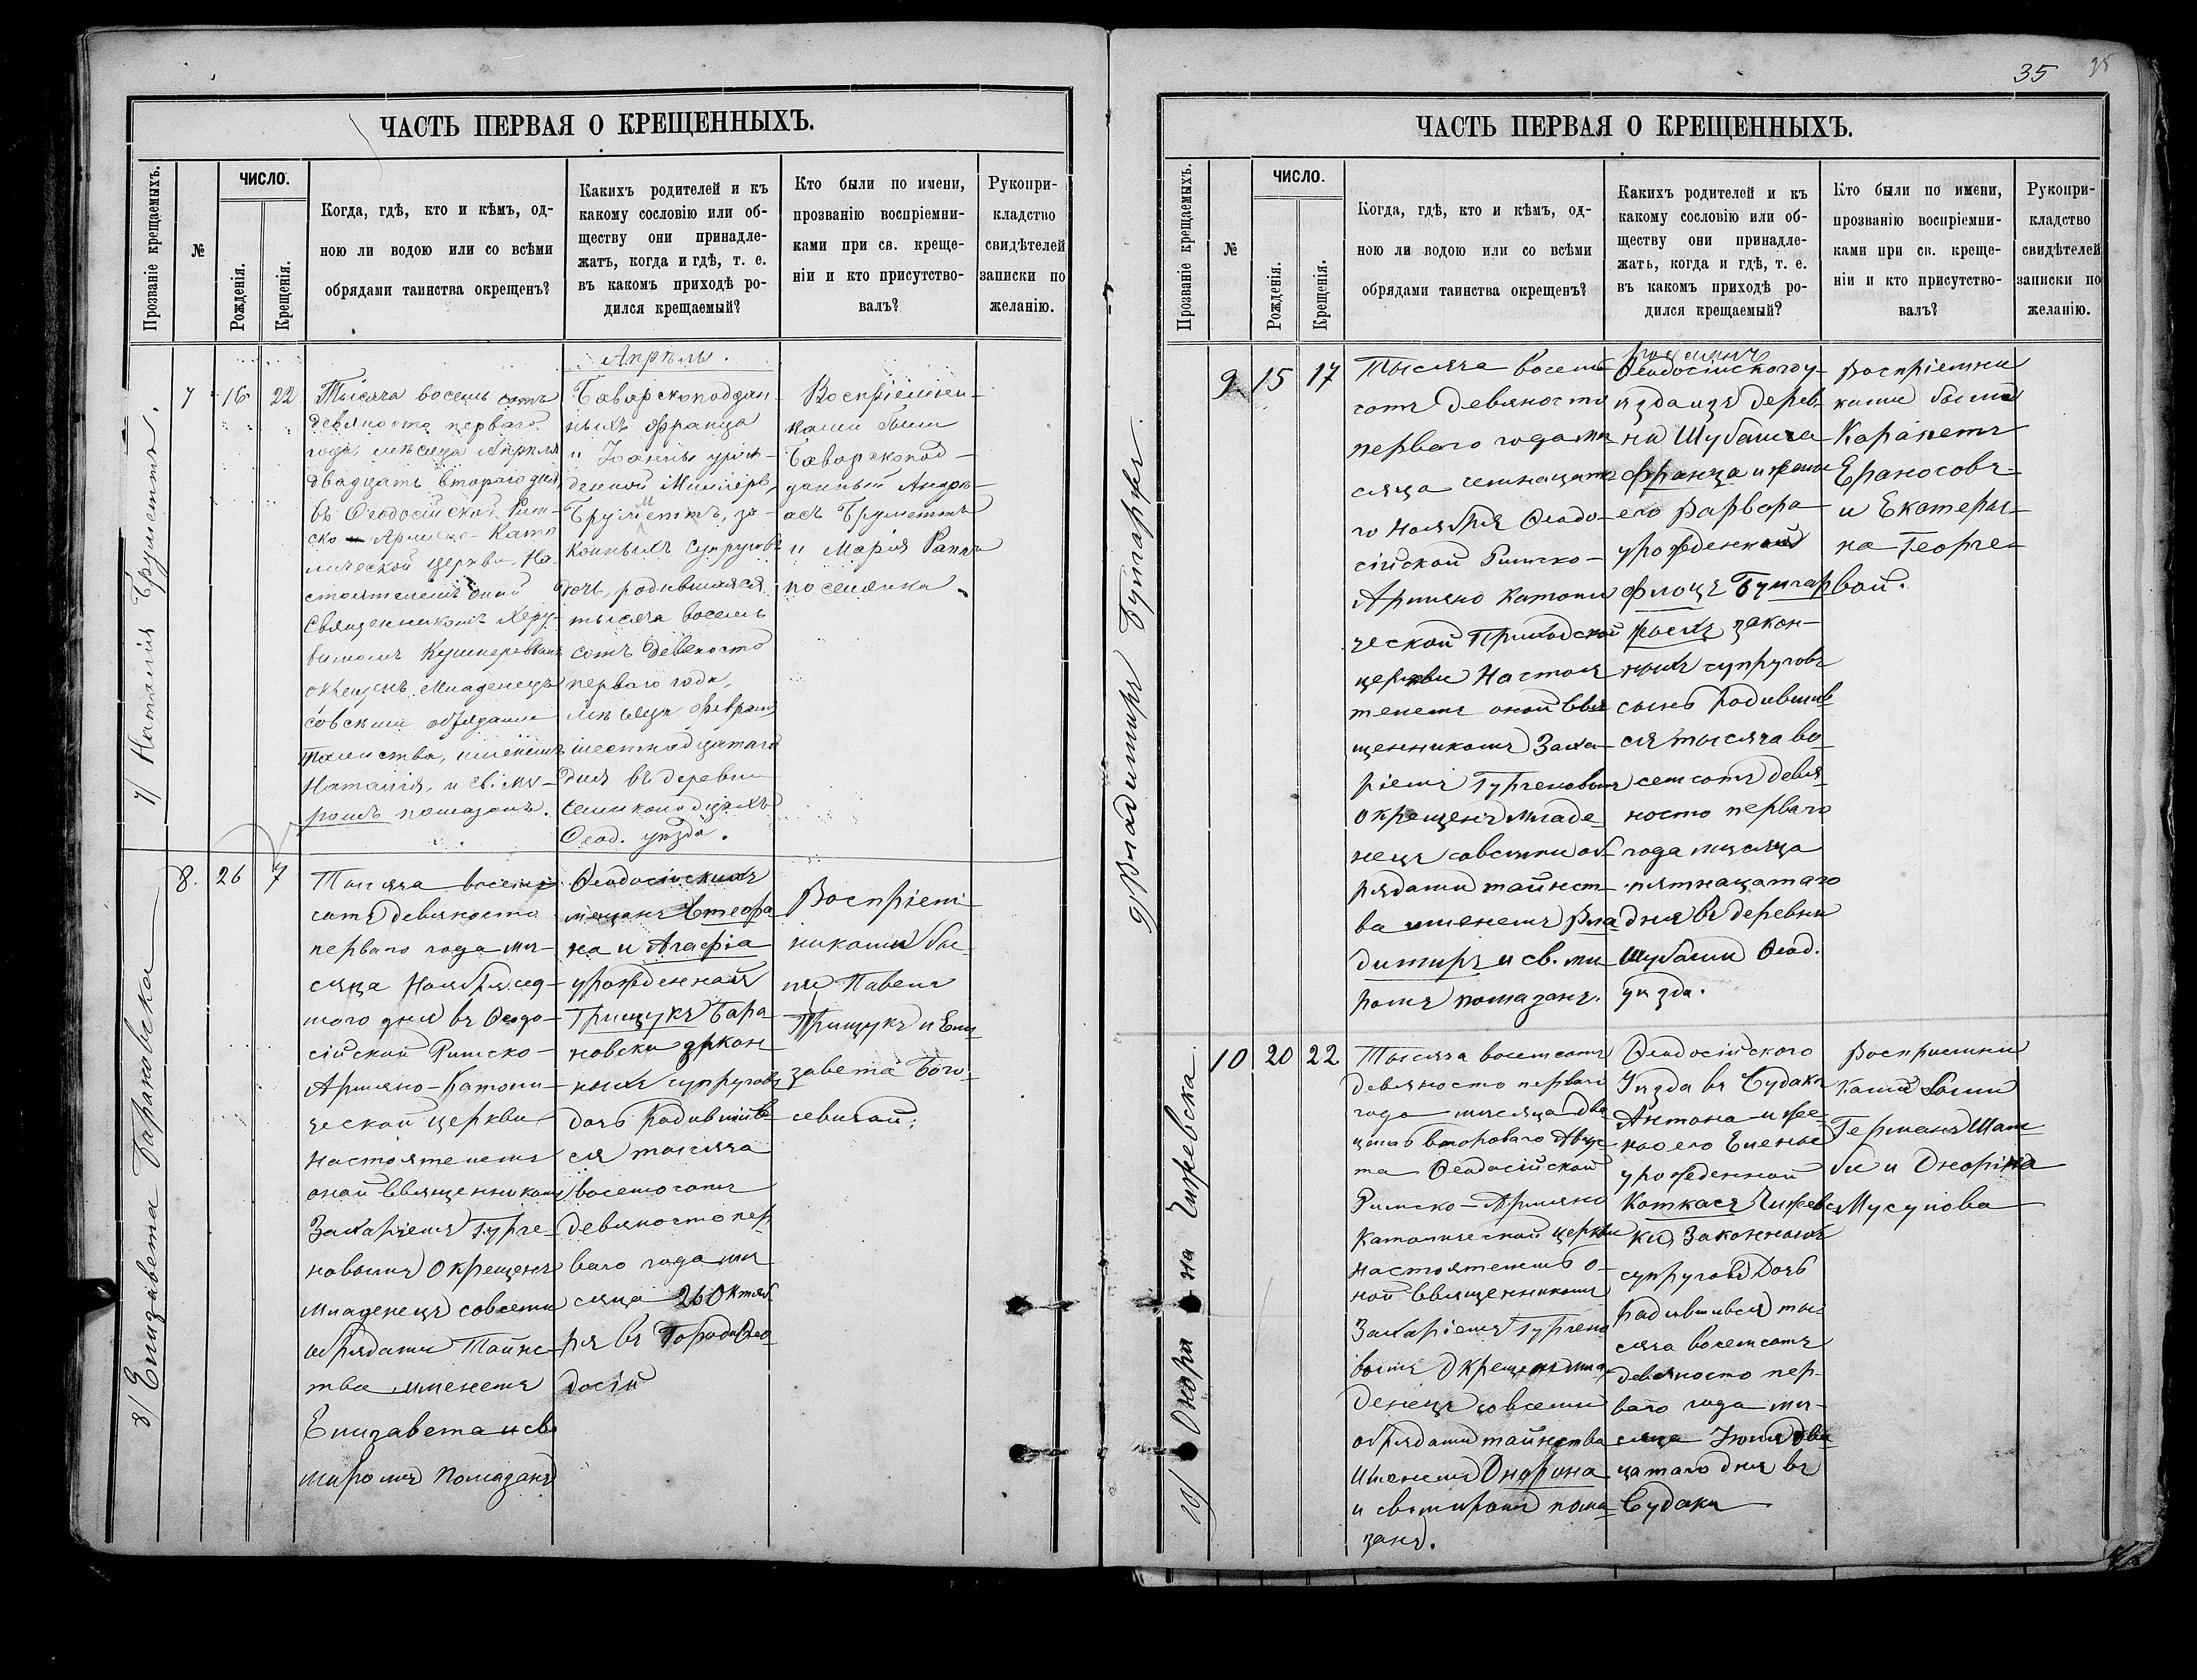 35
ЧАСТЬ ПЕРВАЯ О КРЕЩЕННЫХЪ.
Прозваніе крещаемыхъ.
№
ЧИСЛО.
Рожденія.
Крещенія.
Когда, гдѣ, кто и кѣмъ, од-
ною ли водою или со всѣми
обрядами таинства окрещенъ?
Какихъ родителей и къ
какому сословію или об-
ществу они принадле-
жатъ, когда и гдѣ, т. е.
въ какомъ приходѣ ро-
дился крещаемый?
Кто были по имени,
прозванію воспріемни-
ками при св. креще-
ніи и кто присутство-
валъ?
Рукопри-
кладство
свидѣтелей
записки по
желанію.
7/ Наталія Брулеттъ.
7
16
22
Тысяча восемь сотъ
девяносто перваго
года, мѣсяца Апрѣля
двадцать втораго дня,
въ Ѳеодосійской Рим-
ско - Армяно - Като
лической церкви, На-
стоятелемъ оной
Священникомъ Херу-
вимомъ Кушнеревымъ
окрещенъ Младенецъ
со всѣми обрядами
таинства, именемъ
Наталія, и св. мѵ-
ромъ помазанъ.
Апрѣль.
Баварскоподдан-
ныхъ Франца
и Іоанны урож-
денной Миллеръ,
Брулеттъ, за-
конныхъ супруговъ
дочь, родившаяся
тысяча восемь
сотъ девяносто
перваго года,
мѣсяца Февраля
шестнадцатаго
дня въ деревни
Ѳеод. уѣзда.
Воспріемни-
ками были
Баварскопод-
данный Андре-
асъ Брулеттъ
и Марія Раппъ
поселянка.
8/ Елизавета Барановска
8.
26
7
Тысяча восемь
сотъ девяносто
перваго года мѣ-
сяца Ноября сед-
мого дня въ Ѳеодо-
сійской Римско-
Армяно-Католи-
ческой церкви
Настоятелемъ
оной Священникомъ
Захаріемъ Гурге-
новымъ Окрещенъ
младенецъ совсеми
обрядами Тайнс-
тва именемъ
Елизавета и св.
миромъ Помазанъ
Ѳеодосійскихъ
мещанъ Стефа
на и Агафіа
урожденной
Грищукъ Бара-
новски закон
ныхъ супруговъ
дочь родивший
ся тысяча
восемьсотъ
девяносто пер
ваго года мѣ
сяца 26 Октяб
ря въ Городѣ Ѳео
досіи
Воспріем-
никами бы-
ли Павелъ
Грищукъ и Ели
завета Бого-
севичай;
ЧАСТЬ ПЕРВАЯ О КРЕЩЕННЫХЪ.
Прозваніе крещаемыхъ.
№
ЧИСЛО.
Рожденія.
Крещенія.
Когда, гдѣ, кто и кѣмъ, од-
ною ли водою или со всѣми
обрядами таинства окрещенъ?
Какихъ родителей и къ
какому сословію или об-
ществу они принадле-
жатъ, когда и гдѣ, т. е.
въ какомъ приходѣ ро-
дился крещаемый?
Кто были по имени,
прозванію воспріемни-
ками при св. креще-
ніи и кто присутство-
валъ?
Рукопри-
кладство
свидѣтелей
записки по
желанію.
9/ Владимиръ Бумгарфег
9.
15
17
Тысяча восемь
сотъ девяносто
перваго года мѣ
сяца семнацата
го Ноября Ѳеодо-
сійской Римско-
Армяно Католи
ческой Приходской
церкви Настоя
телемъ оной Свя
щенникомъ Заха-
ріемъ Гургеновымъ
окрещенъ младе-
нецъ совсеми об-
рядами тайнст-
ва именемъ Вла
димиръ и св. ми
ромъ помазанъ.
Ѳеодосійского у-
езда изъ дерев-
ни Шубаша
Франца и жены
его Варвара
урожденной
Флоцъ Бумгар
закон-
ныхъ супруговъ
сынъ родивший
ся тысяча во
семсотъ девя-
носто перваго
года мѣсяца
пятнацатаго
дня въ деревни
Шубаши Ѳеод.
уезда.
Воспріемни
ками были
Карапетъ
Ераносовъ
и Екатери-
на Георге-
вой.
10/ Онорина Чижевска
10
20
22
Тысяча восемсотъ
девяносто перваго
года мѣсяца два
цать второваго Авгус
та Ѳеодосійской
Римско-Армяно
Католической церкви
настоятелемъ о-
ной Священникомъ
Захаріемъ Гургено
вымъ Окрещенъ мла
денецъ совсеми
обрядами тайнства
Именемъ Онорина
и святымиромъ пома
занъ.
Ѳеодосійского
Уезда въ Судакѣ
Антона и же-
ною его Елены
урожденной
Коткася Чижевс
ки, Законныхъ
супруговъ Дочь
Родившийся ты
сяча восемсотъ
девяносто пер-
ваго года мѣ-
сяца Іюля два
цатаго дня въ
Судаки
Восприемни
ками были
Германъ Шат
би и Онорина
Мусупова